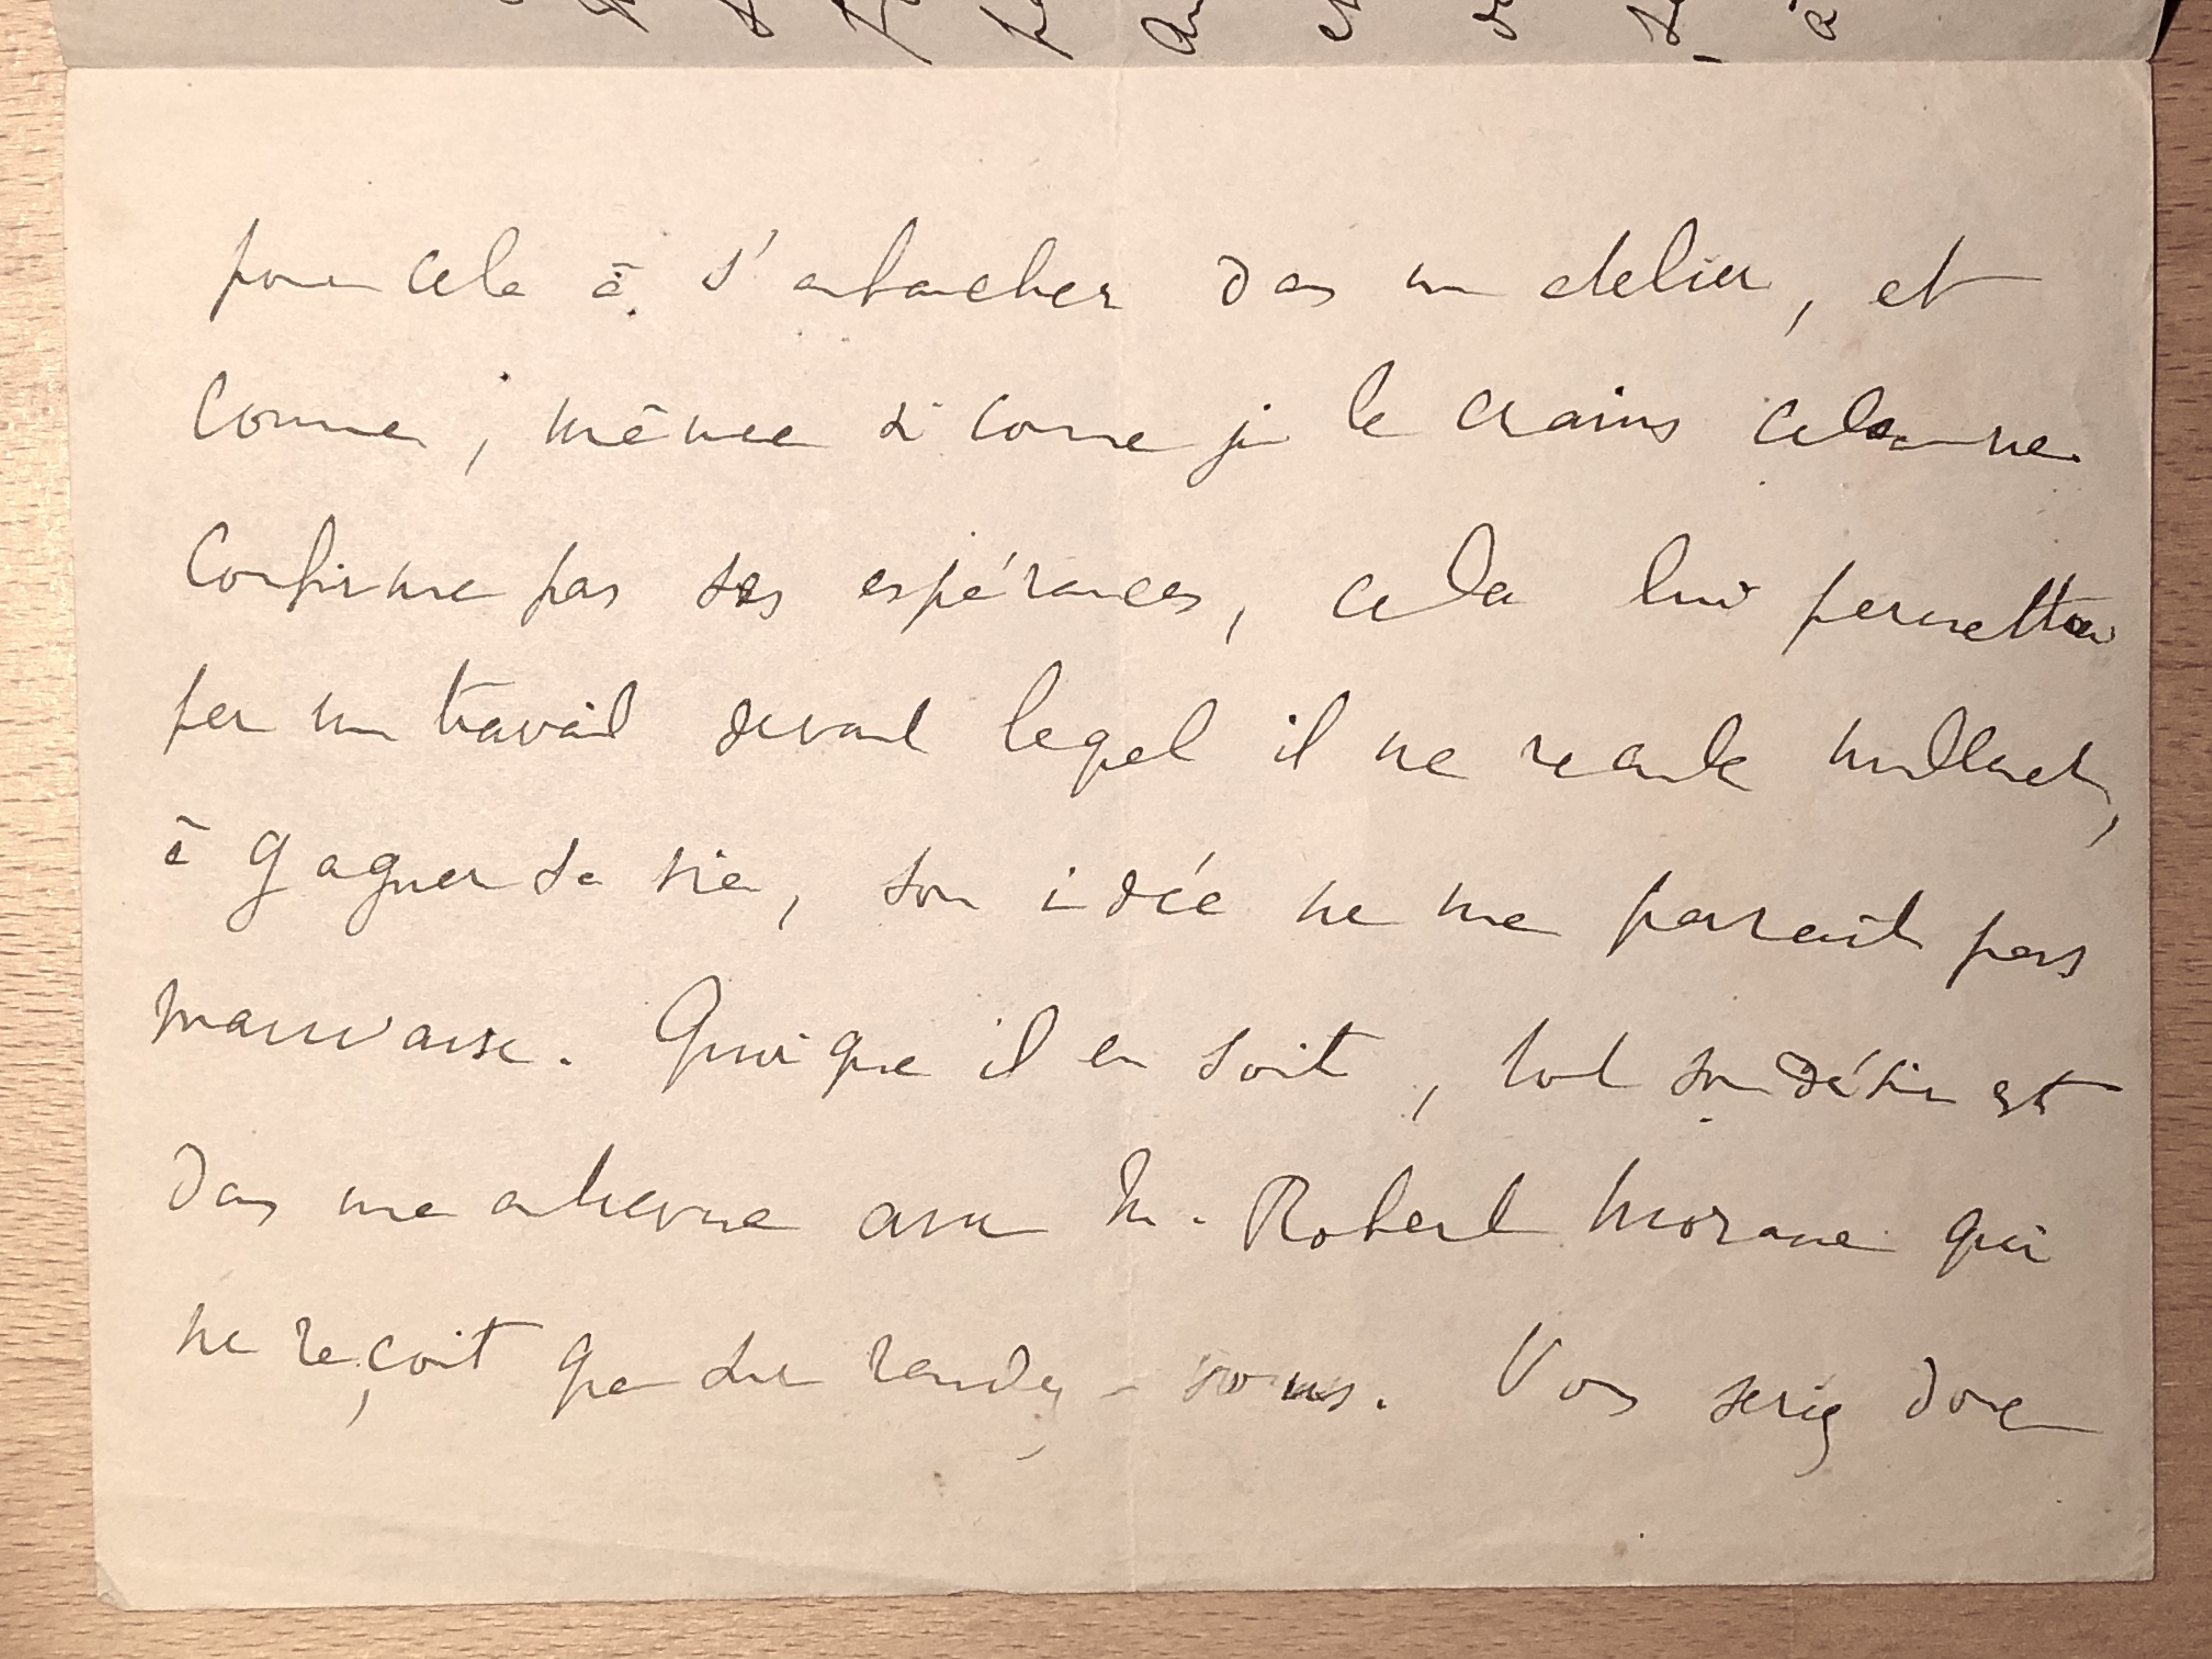 pour cela à s'embaucher dans un atelier, et
comme, même si comme je le crains cela ne
confirme pas ses espérances, cela lui permettra
par un travail devant lequel il ne recule nullement,
à gagner sa vie, son idée ne me paraît pas
mauvaise. Quoique il en soit, tout son désir est
dans une entrevue avec M. Robert Morane qui
ne reçoit que sur rendez-vous. Vous seriez donc